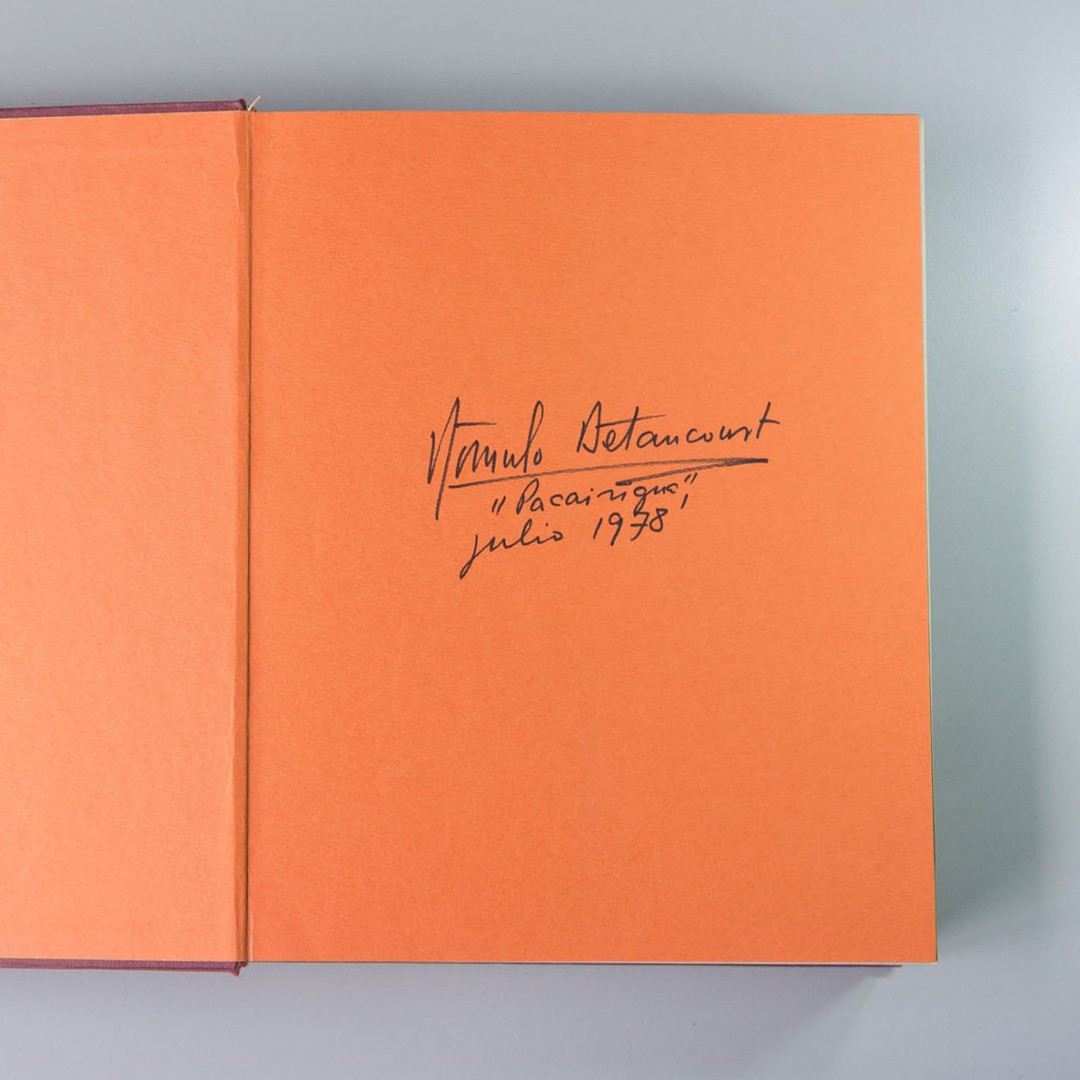 Romulo Betancourt
"Pacairigua",
julio 1978